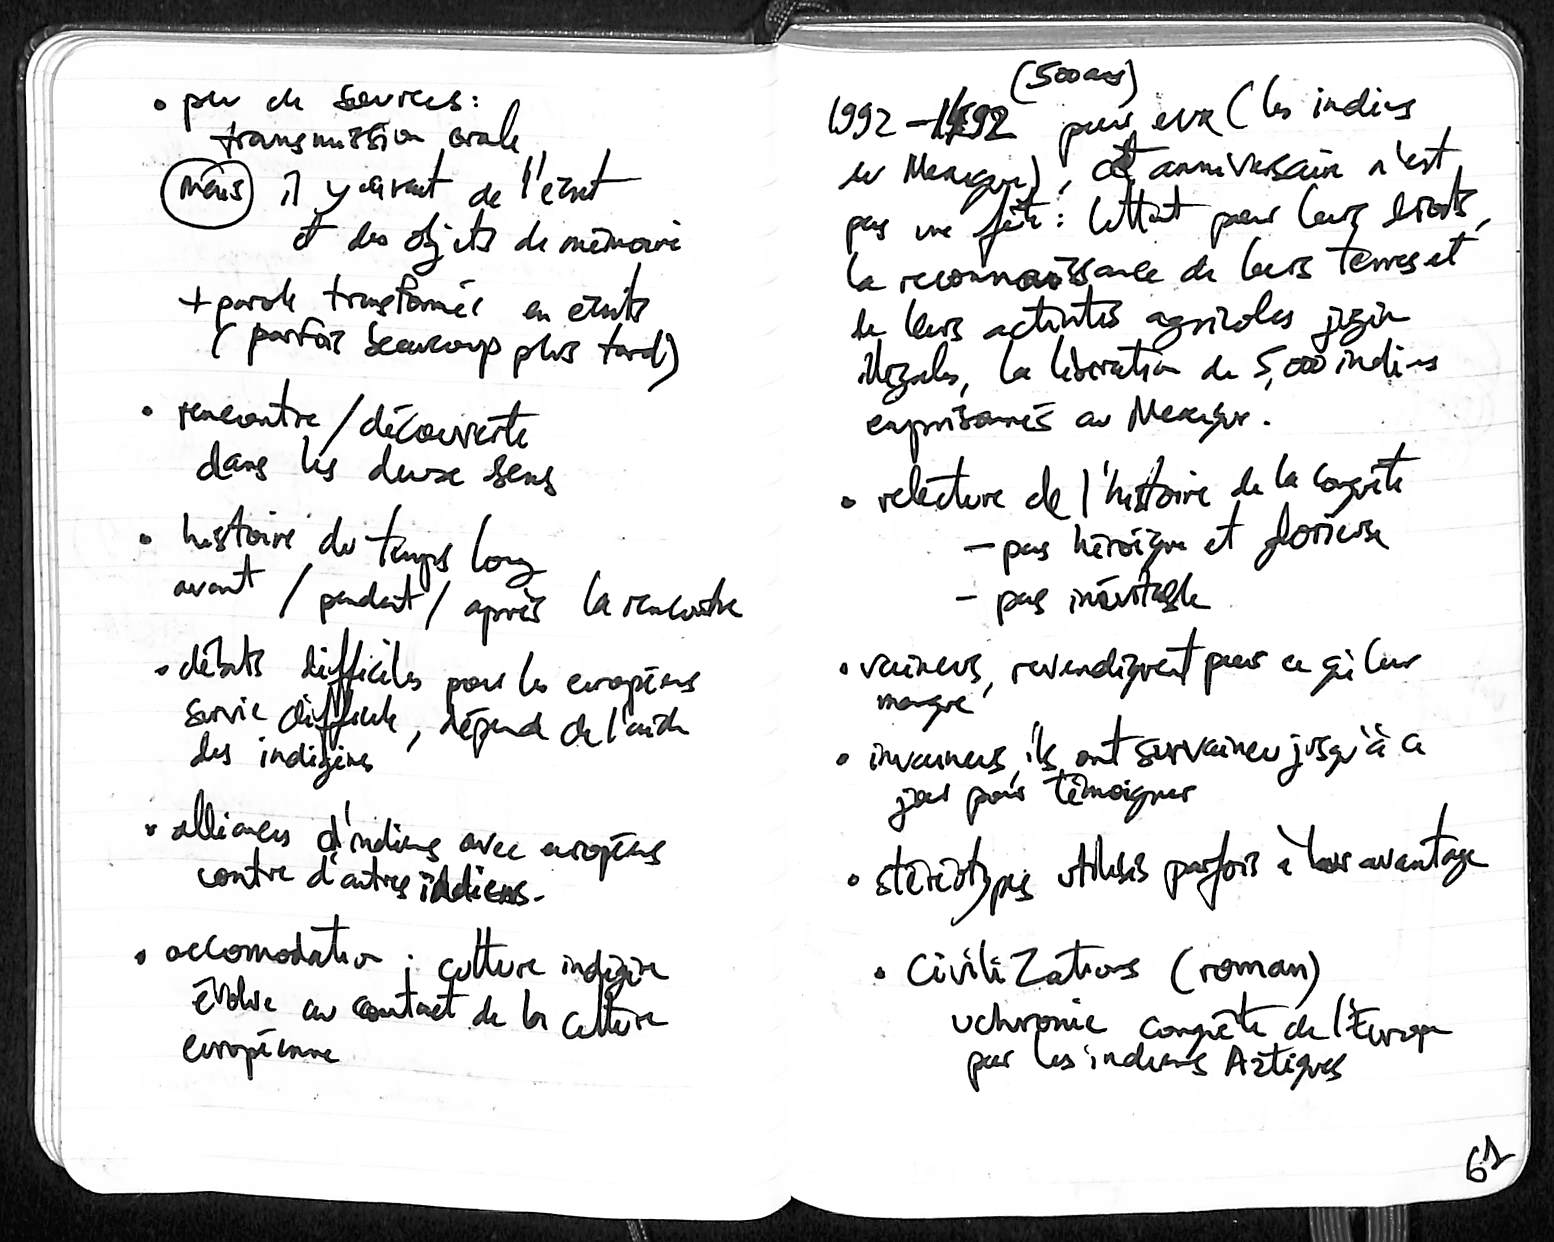 • peu de sources:
transmission orale
mais il y avait de l'écrit
et des objets de mémoire
+ parole transformée en écrits
(parfois beaucoup plus tard)
• rencontre / découverte
dans les deux sens
• histoire du temps long
avant / pendant / après la rencontre
• débuts difficiles pour les européens
survie difficile, dépend de l'aide
des indigènes
• alliances d'indiens avec européens
contre d'autres indiens.
• accomodation : culture indigène
évolue au contact de la culture
européenne
(500 ans)
1992 - 1492 pour eux (les indiens
du Mexique), cet anniversaire n'est
pas une fête : luttent pour leurs droits,
la reconnaissance de leurs terres et
de leurs activités agricoles jugées
illégales, la libération de 5,000 indiens
emprisonnés au Mexique.
• relecture de l'histoire de la conquête
- pas héroïque et glorieuse
- pas inévitable
• vaincus, revendiquent pour ce qui leur
manque
• invaincus, ils ont survaincu jusqu'à ce
jour pour témoigner
• stéréotypes utilisés parfois à leur avantage
• Civilizations (roman)
uchronie conquête de l'Europe
par les indiens Aztèques
61